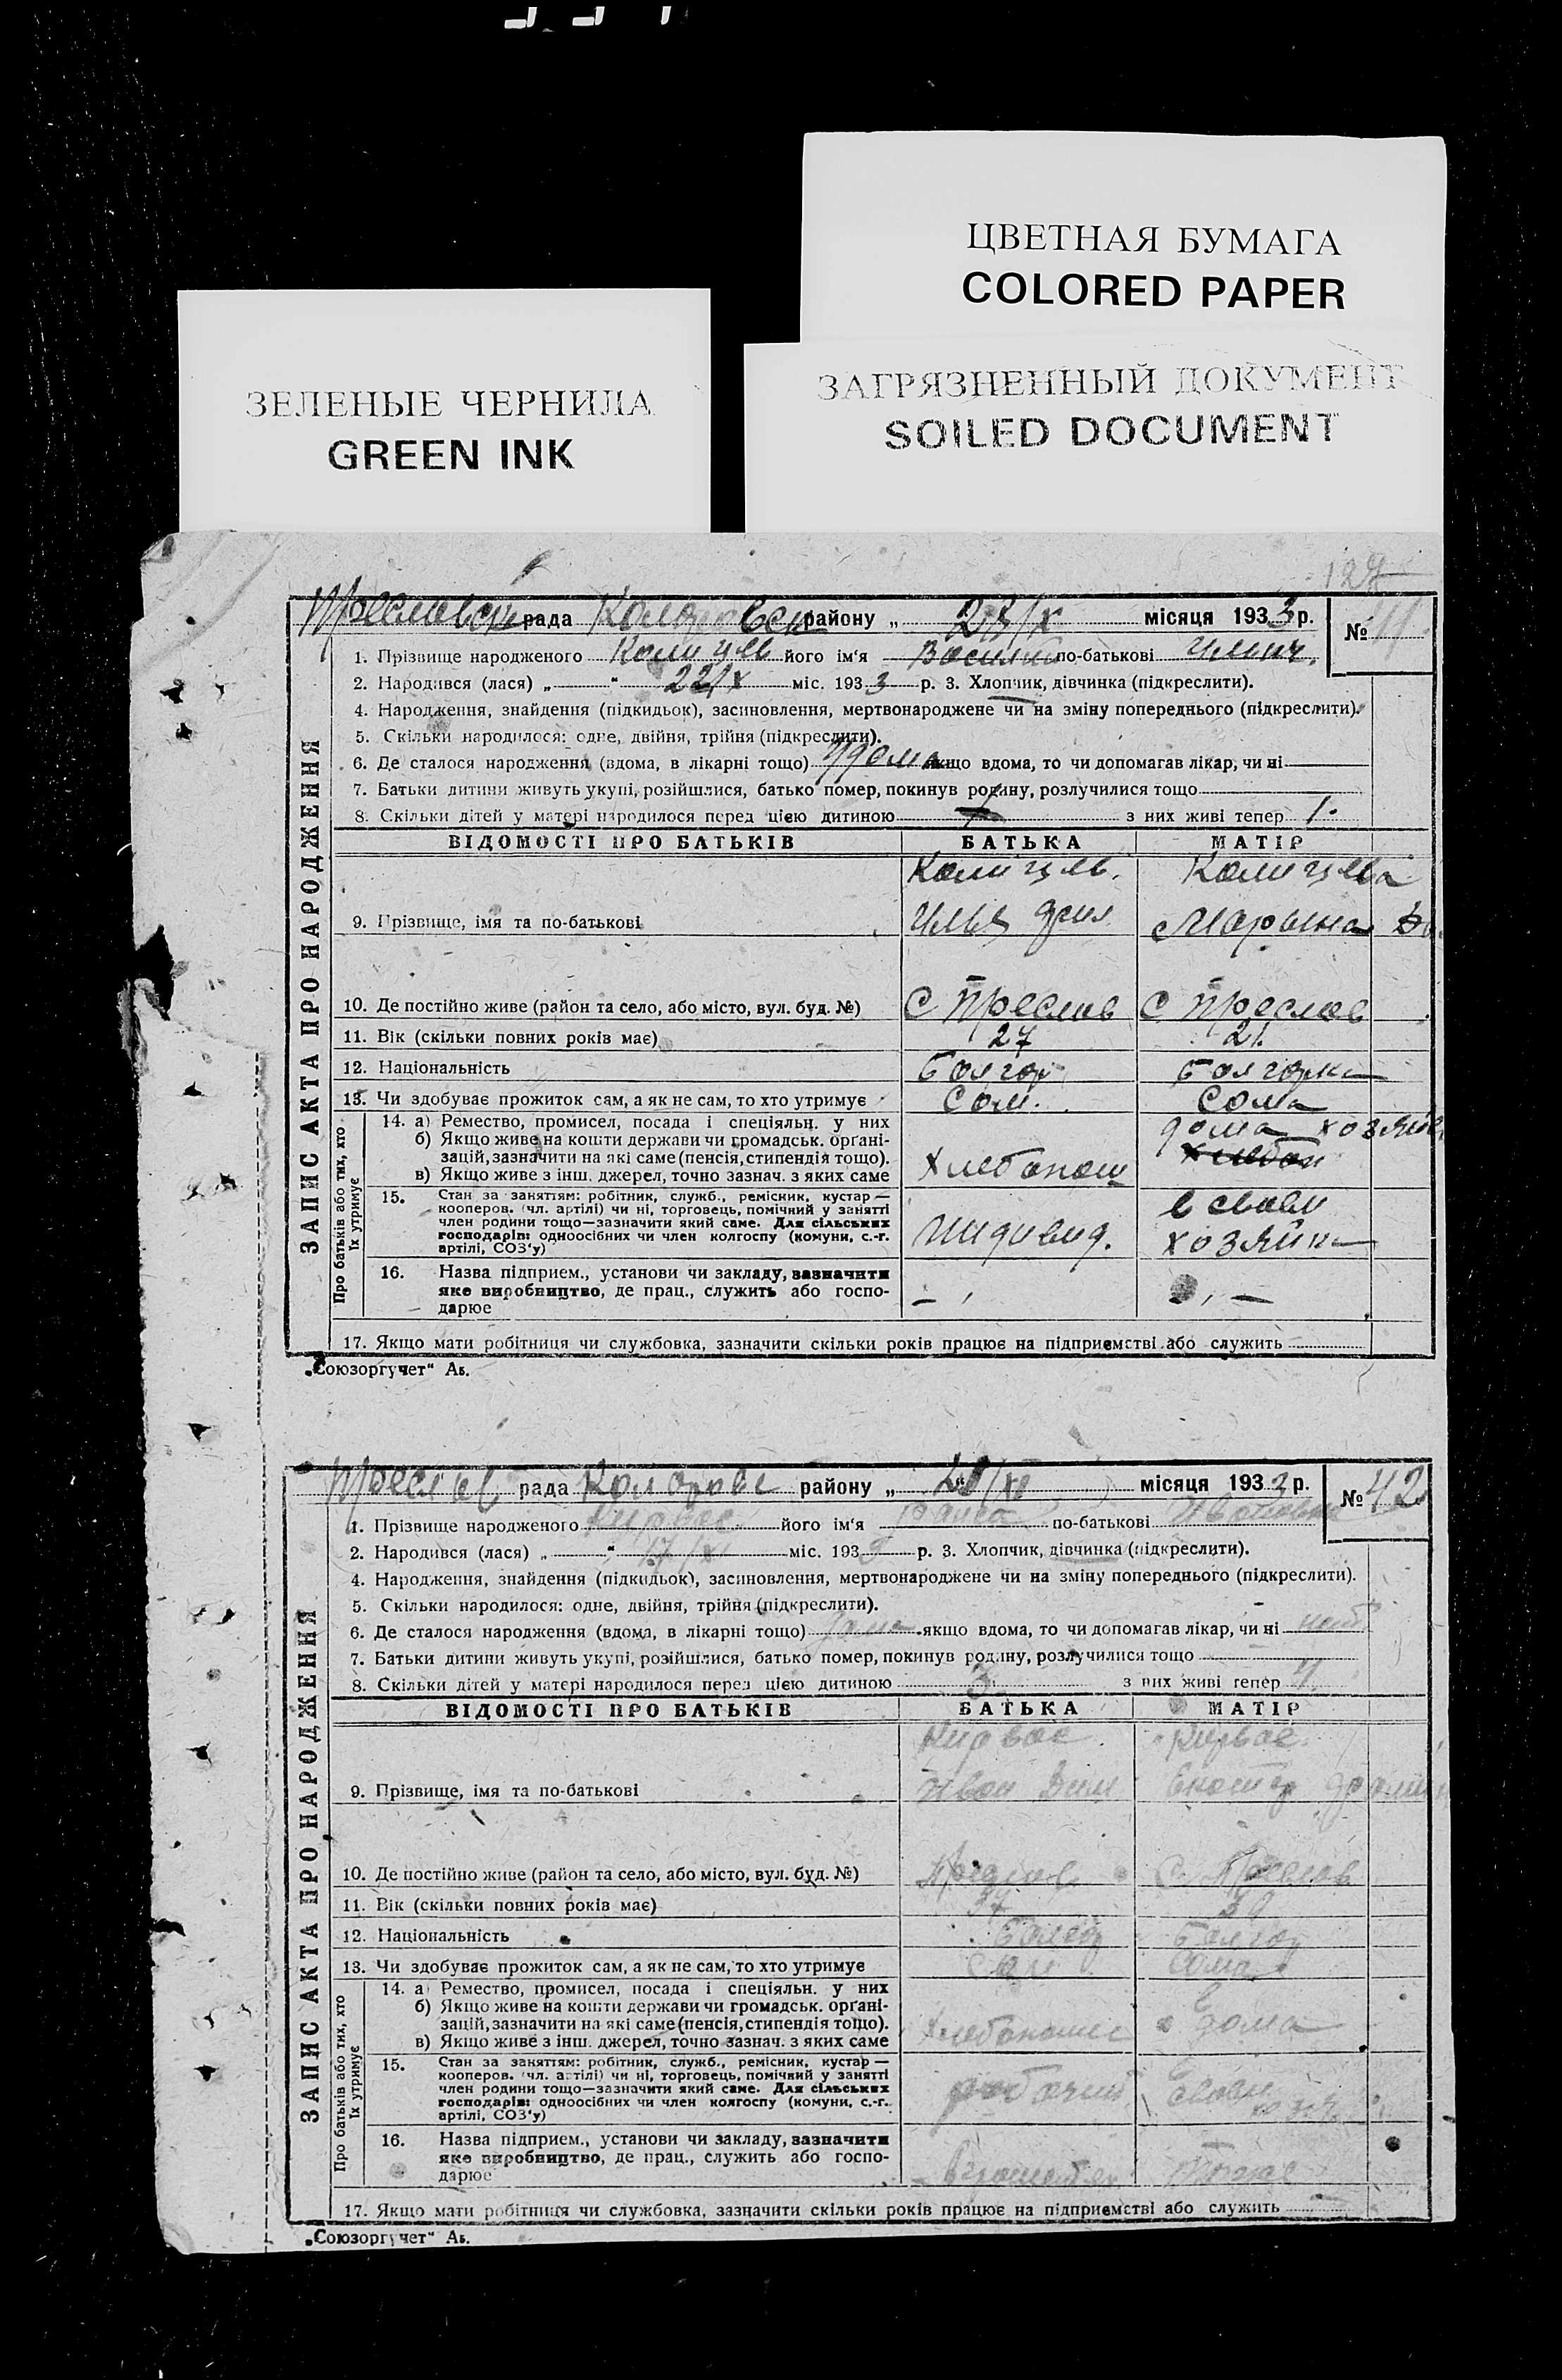 ЦВЕТНАЯ БУМАГА
COLORED PAPER
ЗЕЛЕНЫЕ ЧЕРНИЛА
GREEN INK
ЗАГРЯЗНЕННЫЙ ДОКУМЕНТ
SOILED DOCUMENT
рада району „ 23/X місяця 1933 р. № 41
1. Прізвище народженого його ім'я по-батькові
2. Народився (лася) „ “ 22/X міс. 1933 р. 3. Хлопчик, дівчинка (підкреслити).
4. Народження, знайдення (підкидьок), засиновлення, мертвонароджене чи на зміну попереднього (підкреслити).
5. Скільки народилося: одне, двійня, трійня (підкреслити).
6. Де сталося народження (вдома, в лікарні тощо) якщо вдома, то чи допомагав лікар, чи ні
7. Батьки дитини живуть укупі, розійшлися, батько помер, покинув родину, розлучилися тощо
8. Скільки дітей у матері народилося перед цією дитиною 1 з них живі тепер 1.
ВІДОМОСТІ ПРО БАТЬКІВ БАТЬКА МАТІР
9. Прізвище, імя та по-батькові Илья Марина
10. Де постійно живе (район та село, або місто, вул. буд. №) С Преслав С Преслав
11. Вік (скільки повних років має) 27 21.
12. Національність болгар болгарка
13. Чи здобуває прожиток сам, а як не сам, то хто утримує Сам. Сама
14. а) Ремество, промисел, посада і спеціяльн. у них дома хозяйк
б) Якщо живе на кошти держави чи громадськ. органі-
зацій, зазначити на які саме (пенсія, стипендія тощо).
в) Якщо живе з інш. джерел, точно зазнач. з яких саме хлебопаш
15. Стан за заняттям: робітник, служб., ремісник, кустар —
кооперов. (чл. артілі) чи ні, торговець, помічний у занятті
член родини тощо—зазначити який саме. Для сільських
господарів: одноосібних чи член колгоспу (комуни, с.-г.
артілі, СОЗ'у) индивид. в своем хозяйн
16. Назва підприєм., установи чи закладу, зазначити
яке виробництво, де прац., служить або госпо-
дарює
17. Якщо мати робітниця чи службовка, зазначити скільки років працює на підприємстві або служить
ЗАПИС АКТА ПРО НАРОДЖЕННЯ
Про батьків або тих, хто їх утримує
„Союзоргучет“ Аь.
Преслав рада району „ місяця 1933 р. № 42
1. Прізвище народженого його ім'я по-батькові
2. Народився (лася) „ “ міс. 193 р. 3. Хлопчик, дівчинка (підкреслити).
4. Народження, знайдення (підкидьок), засиновлення, мертвонароджене чи на зміну попереднього (підкреслити).
5. Скільки народилося: одне, двійня, трійня (підкреслити).
6. Де сталося народження (вдома, в лікарні тощо) дома якщо вдома, то чи допомагав лікар, чи ні
7. Батьки дитини живуть укупі, розійшлися, батько помер, покинув родину, розлучилися тощо
8. Скільки дітей у матері народилося перед цією дитиною 3 з них живі тепер
ВІДОМОСТІ ПРО БАТЬКІВ БАТЬКА МАТІР
9. Прізвище, імя та по-батькові Иван Дим
10. Де постійно живе (район та село, або місто, вул. буд. №) Преслав С. Преслав
11. Вік (скільки повних років має) 37
12. Національність болгар болгар
13. Чи здобуває прожиток сам, а як не сам, то хто утримує сам сама
14. а) Ремество, промисел, посада і спеціяльн. у них
б) Якщо живе на кошти держави чи громадськ. органі-
зацій, зазначити на які саме (пенсія, стипендія тощо).
в) Якщо живе з інш. джерел, точно зазнач. з яких саме дома
15. Стан за заняттям: робітник, служб., ремісник, кустар —
кооперов. (чл. артілі) чи ні, торговець, помічний у занятті
член родини тощо—зазначити який саме. Для сільських
господарів: одноосібних чи член колгоспу (комуни, с.-г.
артілі, СОЗ'у) рабочий
16. Назва підприєм., установи чи закладу, зазначити
яке виробництво, де прац., служить або госпо-
дарює
17. Якщо мати робітниця чи службовка, зазначити скільки років працює на підприємстві або служить
ЗАПИС АКТА ПРО НАРОДЖЕННЯ
Про батьків або тих, хто їх утримує
„Союзоргучет“ Аь.